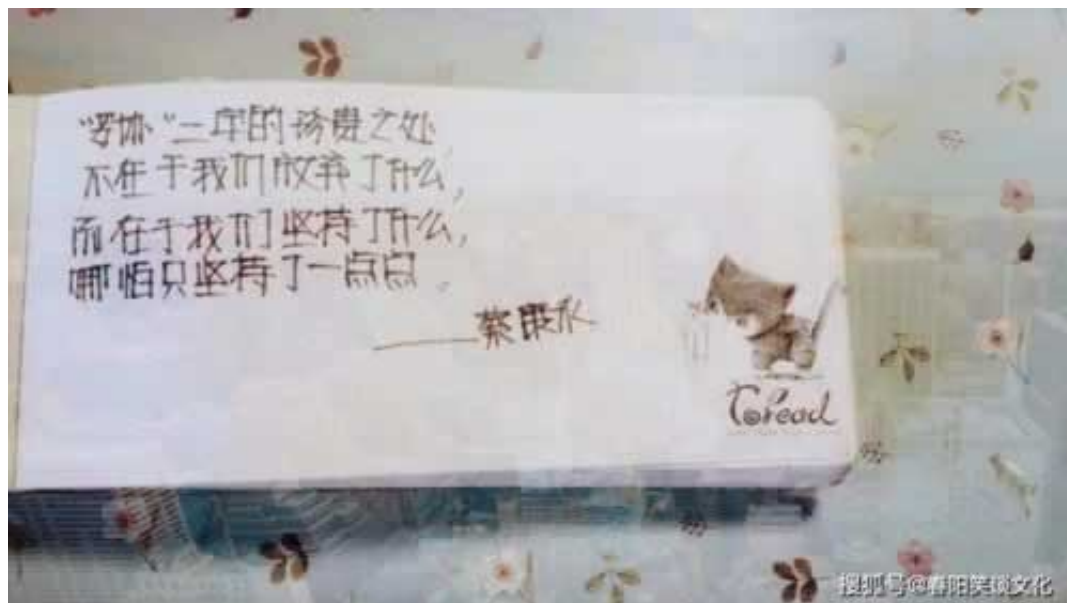 “字协”二年的珍贵之处
不在于我们放弃了什么，
而在于我们坚持了什么，
哪怕只坚持了一点点。
——蔡康永
Toread
搜狐号@春阳笑谈文化